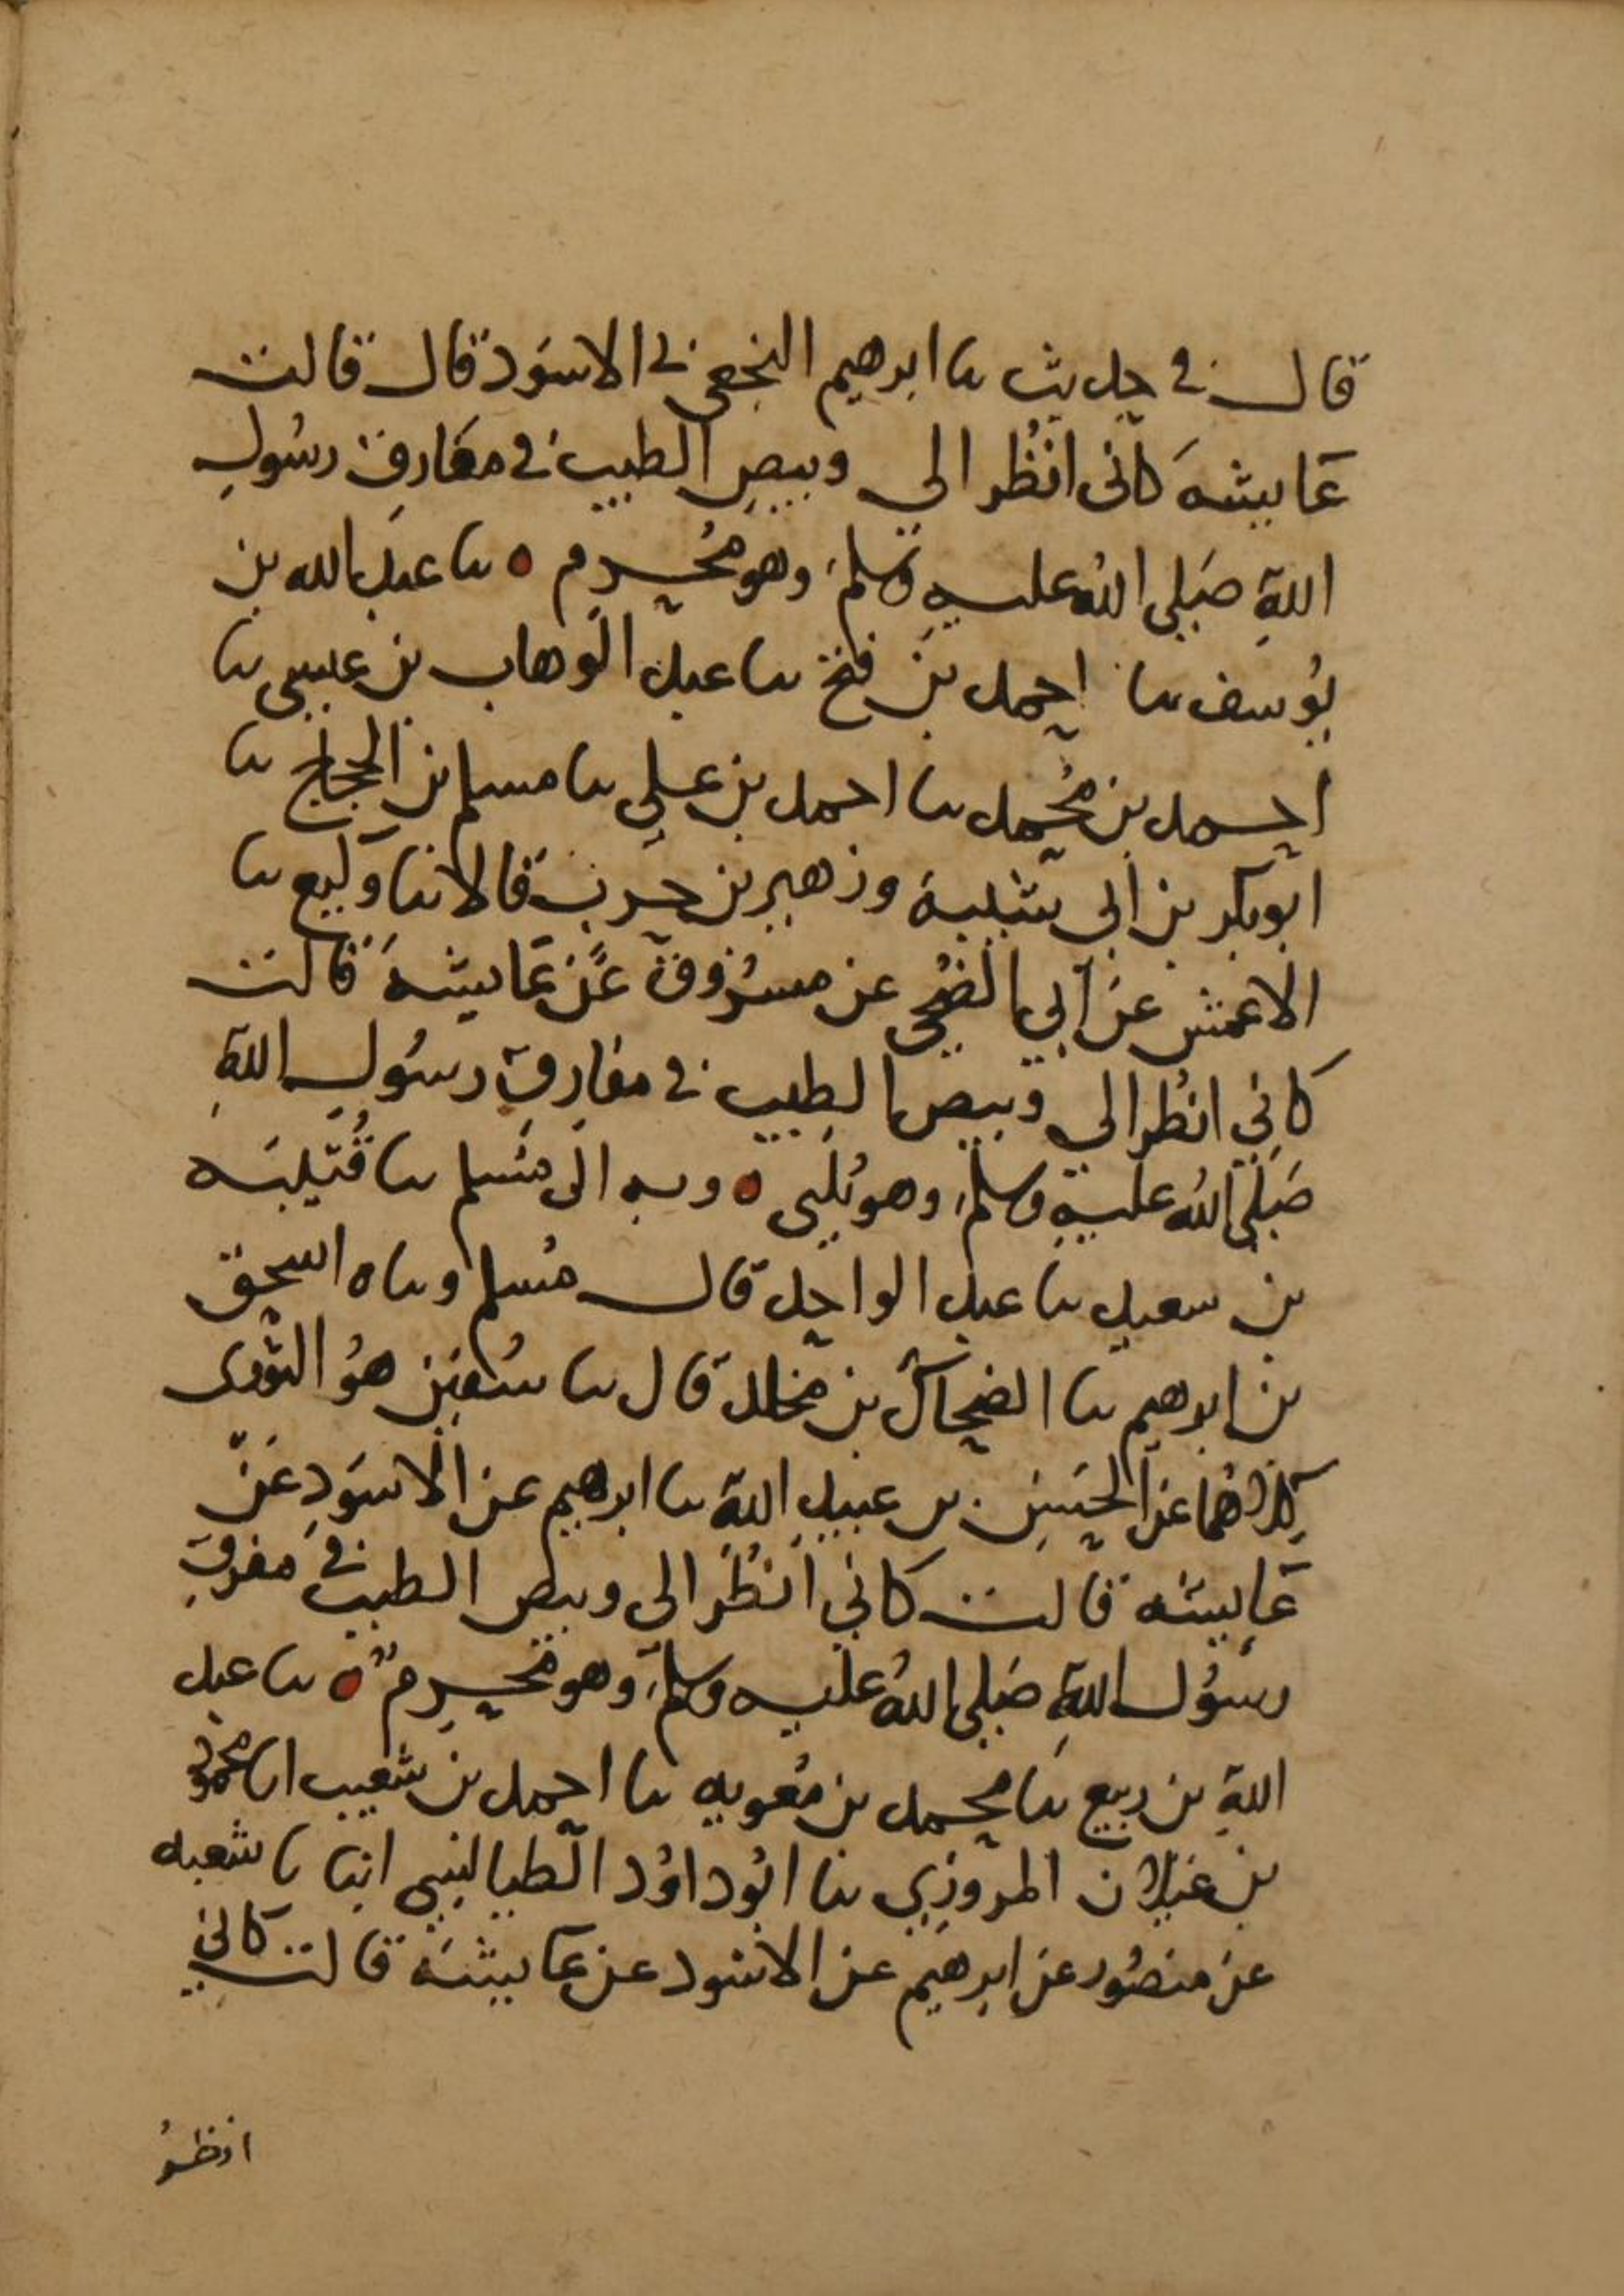 قال في حديث نا ابرهيم النخعي نا الاسود قال قالت
عايشة كاني انظر الى وبيص الطيب في مفارق رسول
الله صلى الله عليه وسلم وهو محرم ه نا عبد الله بن
يوسف نا احمد بن فتح نا عبد الوهاب بن عيسى نا
احمد بن محمد نا احمد بن علي نا مسلم بن الحجاج نا
ابو بكر بن ابي شيبة وزهير بن حرب قالا نا وكيع نا
الاعمش عن ابي الضحى عن مسروق عن عايشة قالت
كاني انظر الى وبيص الطيب في مفارق رسول الله
صلى الله عليه وسلم وهو يلبي ه وبه الى مسلم نا قتيبه
بن سعيد نا عبد الواحد قال مسلم وناه اسحق
بن ابرهيم نا الضحاك بن مخلد قال نا سفين هو الثوري
كلاهما عن الحسن بن عبيد الله نا ابرهيم عن الاسود عن
عايشه قالت كاني انظر الى وبيص الطيب في مفرق
رسول الله صلى الله عليه وسلم وهو محرم ه نا عبد
الله بن ربيع نا محمد بن معويه نا احمد بن شعيب انا محمود
بن غيلان المروزي نا ابو داود الطيالسي انا نا شعبه
عن منصور عن ابرهيم عن الاسود عن عايشة قالت كاني
انظر